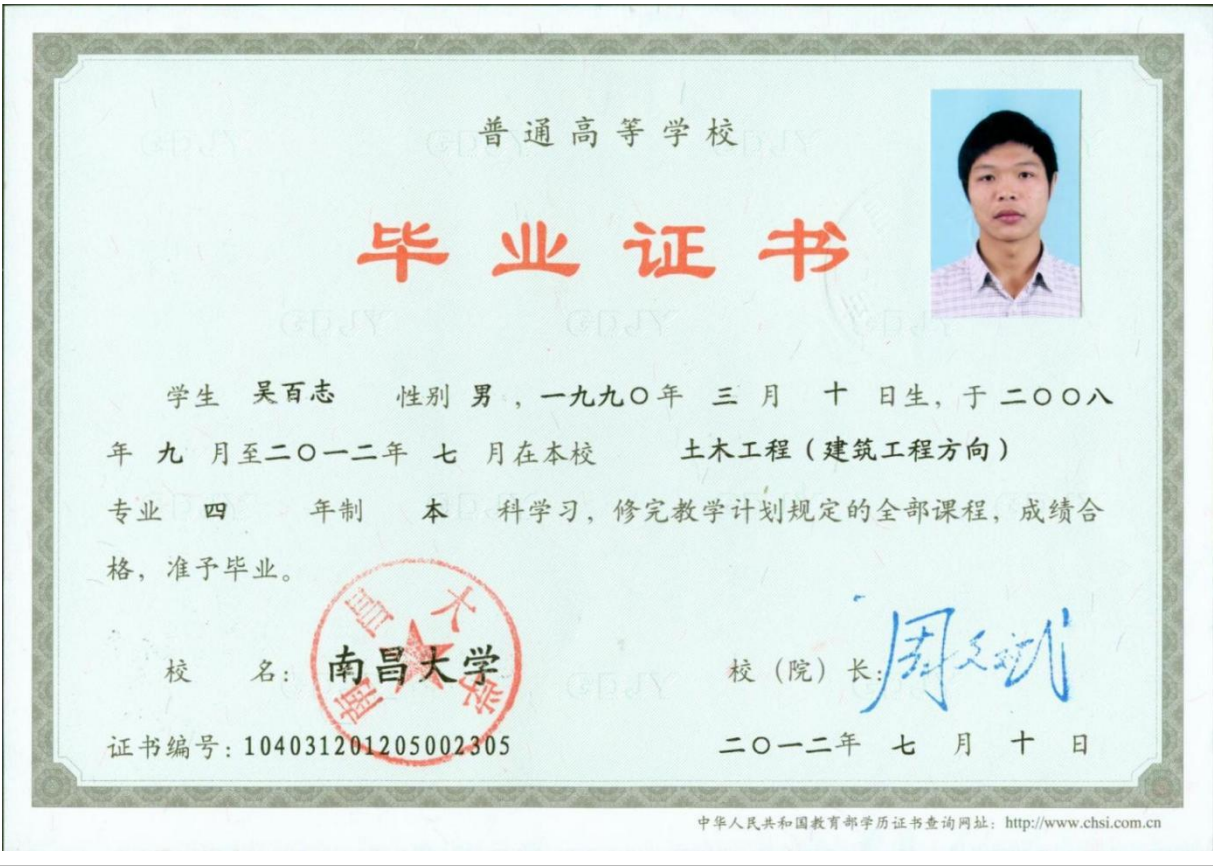 普通高等学校
毕业证书
学生 吴百志 性别 男，一九九〇年 三 月 十 日生，于 二〇〇八
年 九 月至二〇一二年 七 月在本校 土木工程（建筑工程方向）
专业 四 年制 本 科学习，修完教学计划规定的全部课程，成绩合
格，准予毕业。
校 名：南昌大学
南昌大学
校（院）长：周文斌
证书编号：104031201205002305
二〇一二年 七 月 十 日
中华人民共和国教育部学历证书查询网址：http://www.chsi.com.cn